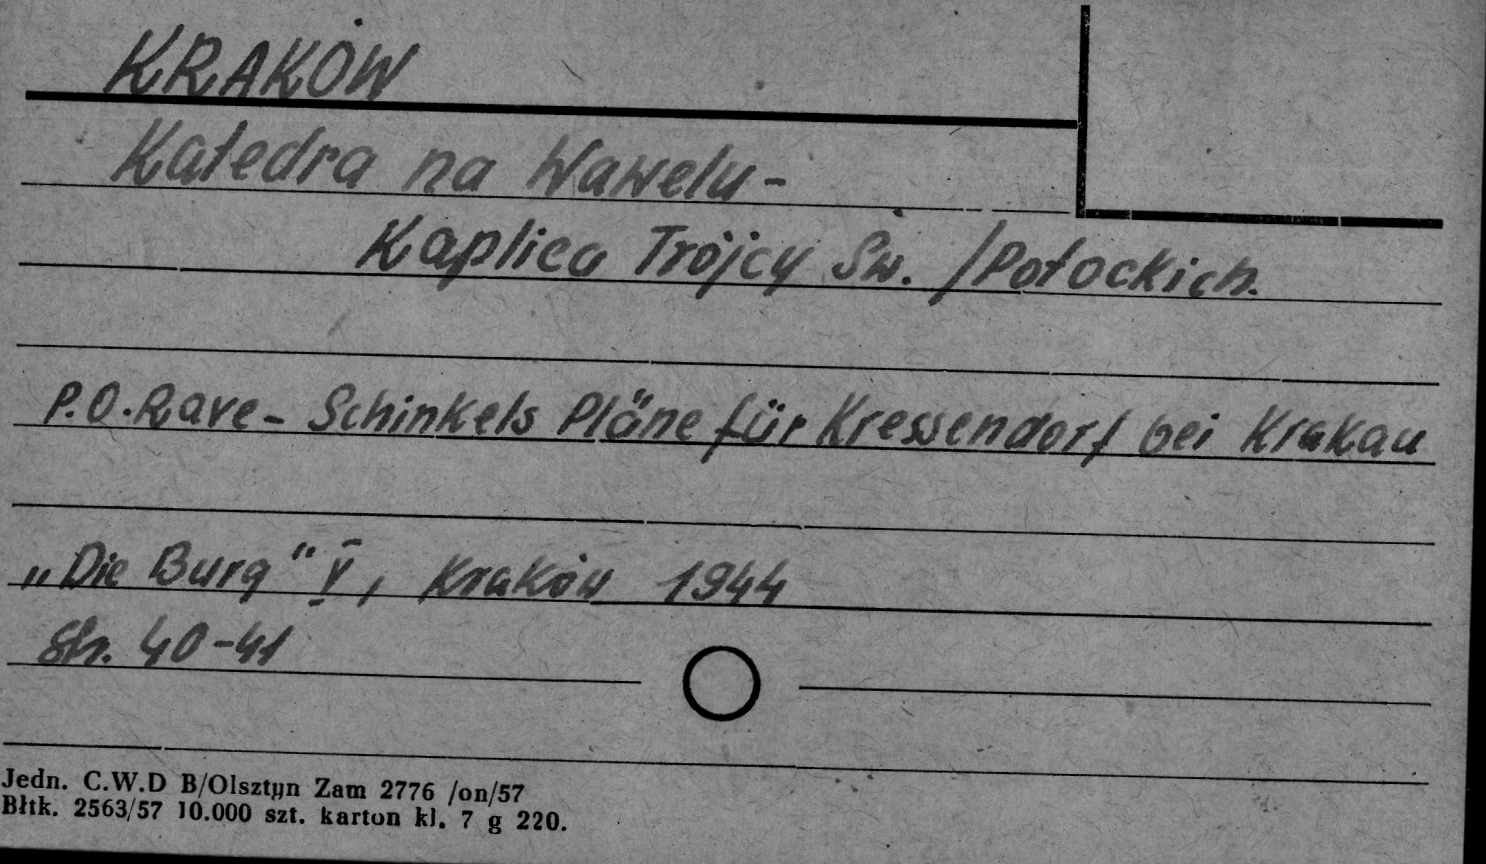 KRAKÓW
Katedra na Wawelu -
Kaplica Trójcy Św. /Potockich.
P.O. Rave - Schinkels Pläne für Kressendorf bei Krakau
„Die Burg" V, Kraków 1944
Str. 40-41
Jedn. C.W.D B/Olsztyn Zam 2776 /on/57
Błtk. 2563/57 10.000 szt. karton kl. 7 g 220.